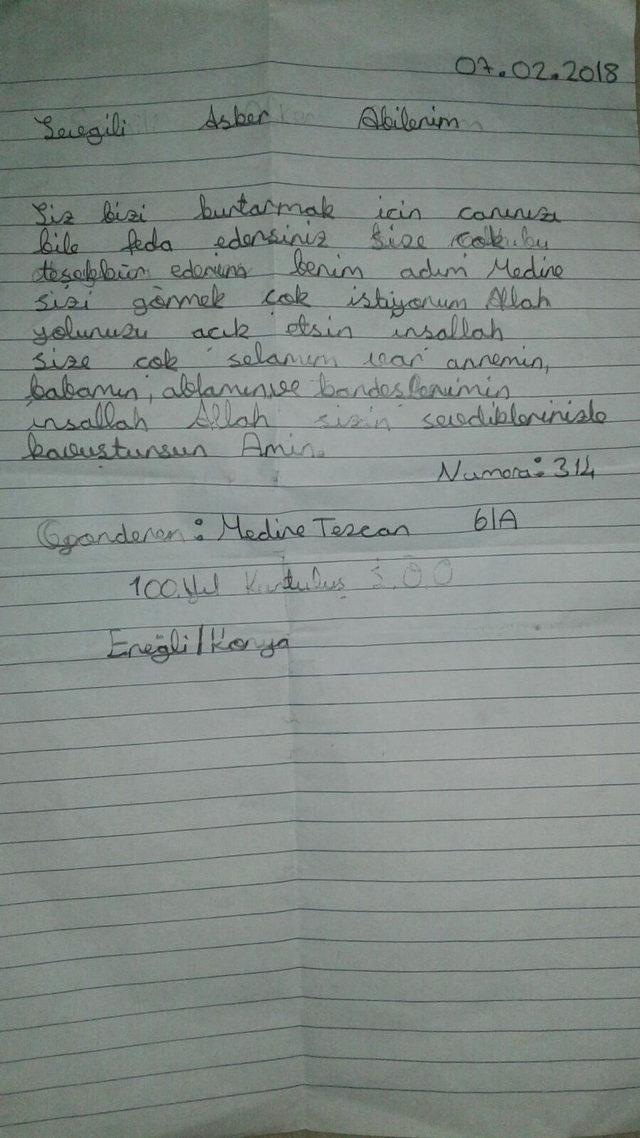 07.02.2018
Sevgili Asker Abilerim
Siz bizi kurtarmak icin canınızı
bile feda edersiniz size cok
teşekkür ederim benim adım Medine
sizi görmek cok istiyorum Allah
yolunuzu acık etsin insallah
size cok selamım var annemin,
babamın, ablamın ve kardeslerimin
insallah Allah sizin sevdiklerinizle
kavuştursun Amin.
Numara: 314
Gönderen: Medine Tezcan 6/A
100.Yıl Kurtuluş İ.O.O
Ereğli/Konya